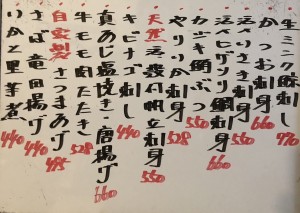 生ミンク鯨刺し 970
かつお刺身 660
活いさき刺身 550
活ヘダツリ鯛刺身 660
カツオ鯛ぶつ 550
やりいか刺身 528
天然活殻付帆立刺身 550
キビナゴ刺し 440
真あじ塩焼き・唐揚げ 660
牛モモ肉たたき 528
自家製さつまあげ 495
さば竜田揚げ 440
いかと里芋煮 440